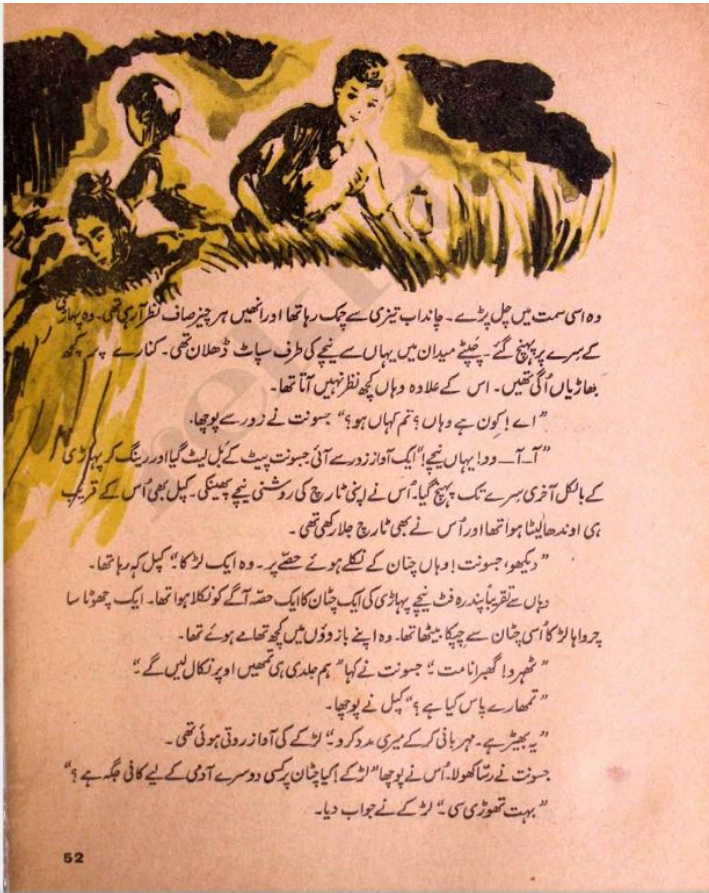 وہ اسی سمت میں چل پڑے۔ چاند اب تیزی سے چمک رہا تھا اور انھیں ہر چیز صاف نظر آرہی تھی۔ وہ پہاڑی
کے سرے پر پہنچ گئے۔ چپٹے میدان میں یہاں سے نیچے کی طرف سپاٹ ڈھلان تھی۔ کنارے پر کچھ
جھاڑیاں اُگی تھیں۔ اس کے علاوہ وہاں کچھ نظر نہیں آتا تھا۔
"اے! کون ہے وہاں؟ تم کہاں ہو؟" جسونت نے زور سے پوچھا۔
"آ۔آ۔۔وو! یہاں نیچے!" ایک آواز زور سے آئی۔ جسونت پیٹ کے بُل لیٹ گیا اور رینگ کر پہاڑی
کے بالکل آخری سرے تک پہنچ گیا۔ اُس نے اپنی ٹارچ کی روشنی نیچے پھینکی۔ کپل بھی اُس کے قریب
ہی اوندھا لیٹا ہوا تھا اور اُس نے بھی ٹارچ جلا رکھی تھی۔
"دیکھو، جسونت! وہاں چٹان کے نکلے ہوئے حصّے پر۔ وہ ایک لڑکا۔" کپل کہہ رہا تھا۔
وہاں سے تقریباً پندرہ فٹ نیچے پہاڑی کی ایک چٹان کا ایک حصّہ آگے کو نکلا ہوا تھا۔ ایک چھوٹا سا
چرواہا لڑکا اُسی چٹان سے چپکا بیٹھا تھا۔ وہ اپنے بازوؤں میں کچھ تھامے ہوئے تھا۔
"ٹھہرو! گھبرانا مت۔" جسونت نے کہا "ہم جلدی ہی تمھیں اوپر نکال لیں گے۔"
"تمھارے پاس کیا ہے؟" کپل نے پوچھا۔
"یہ بھیڑ ہے۔ مہربانی کرکے میری مدد کرو۔" لڑکے کی آواز روتی ہوئی تھی۔
جسونت نے رسّا کھولا۔ اُس نے پوچھا "لڑکے! کیا چٹان پر کسی دوسرے آدمی کے لیے کافی جگہ ہے؟"
"بہت تھوڑی سی۔" لڑکے نے جواب دیا۔
52